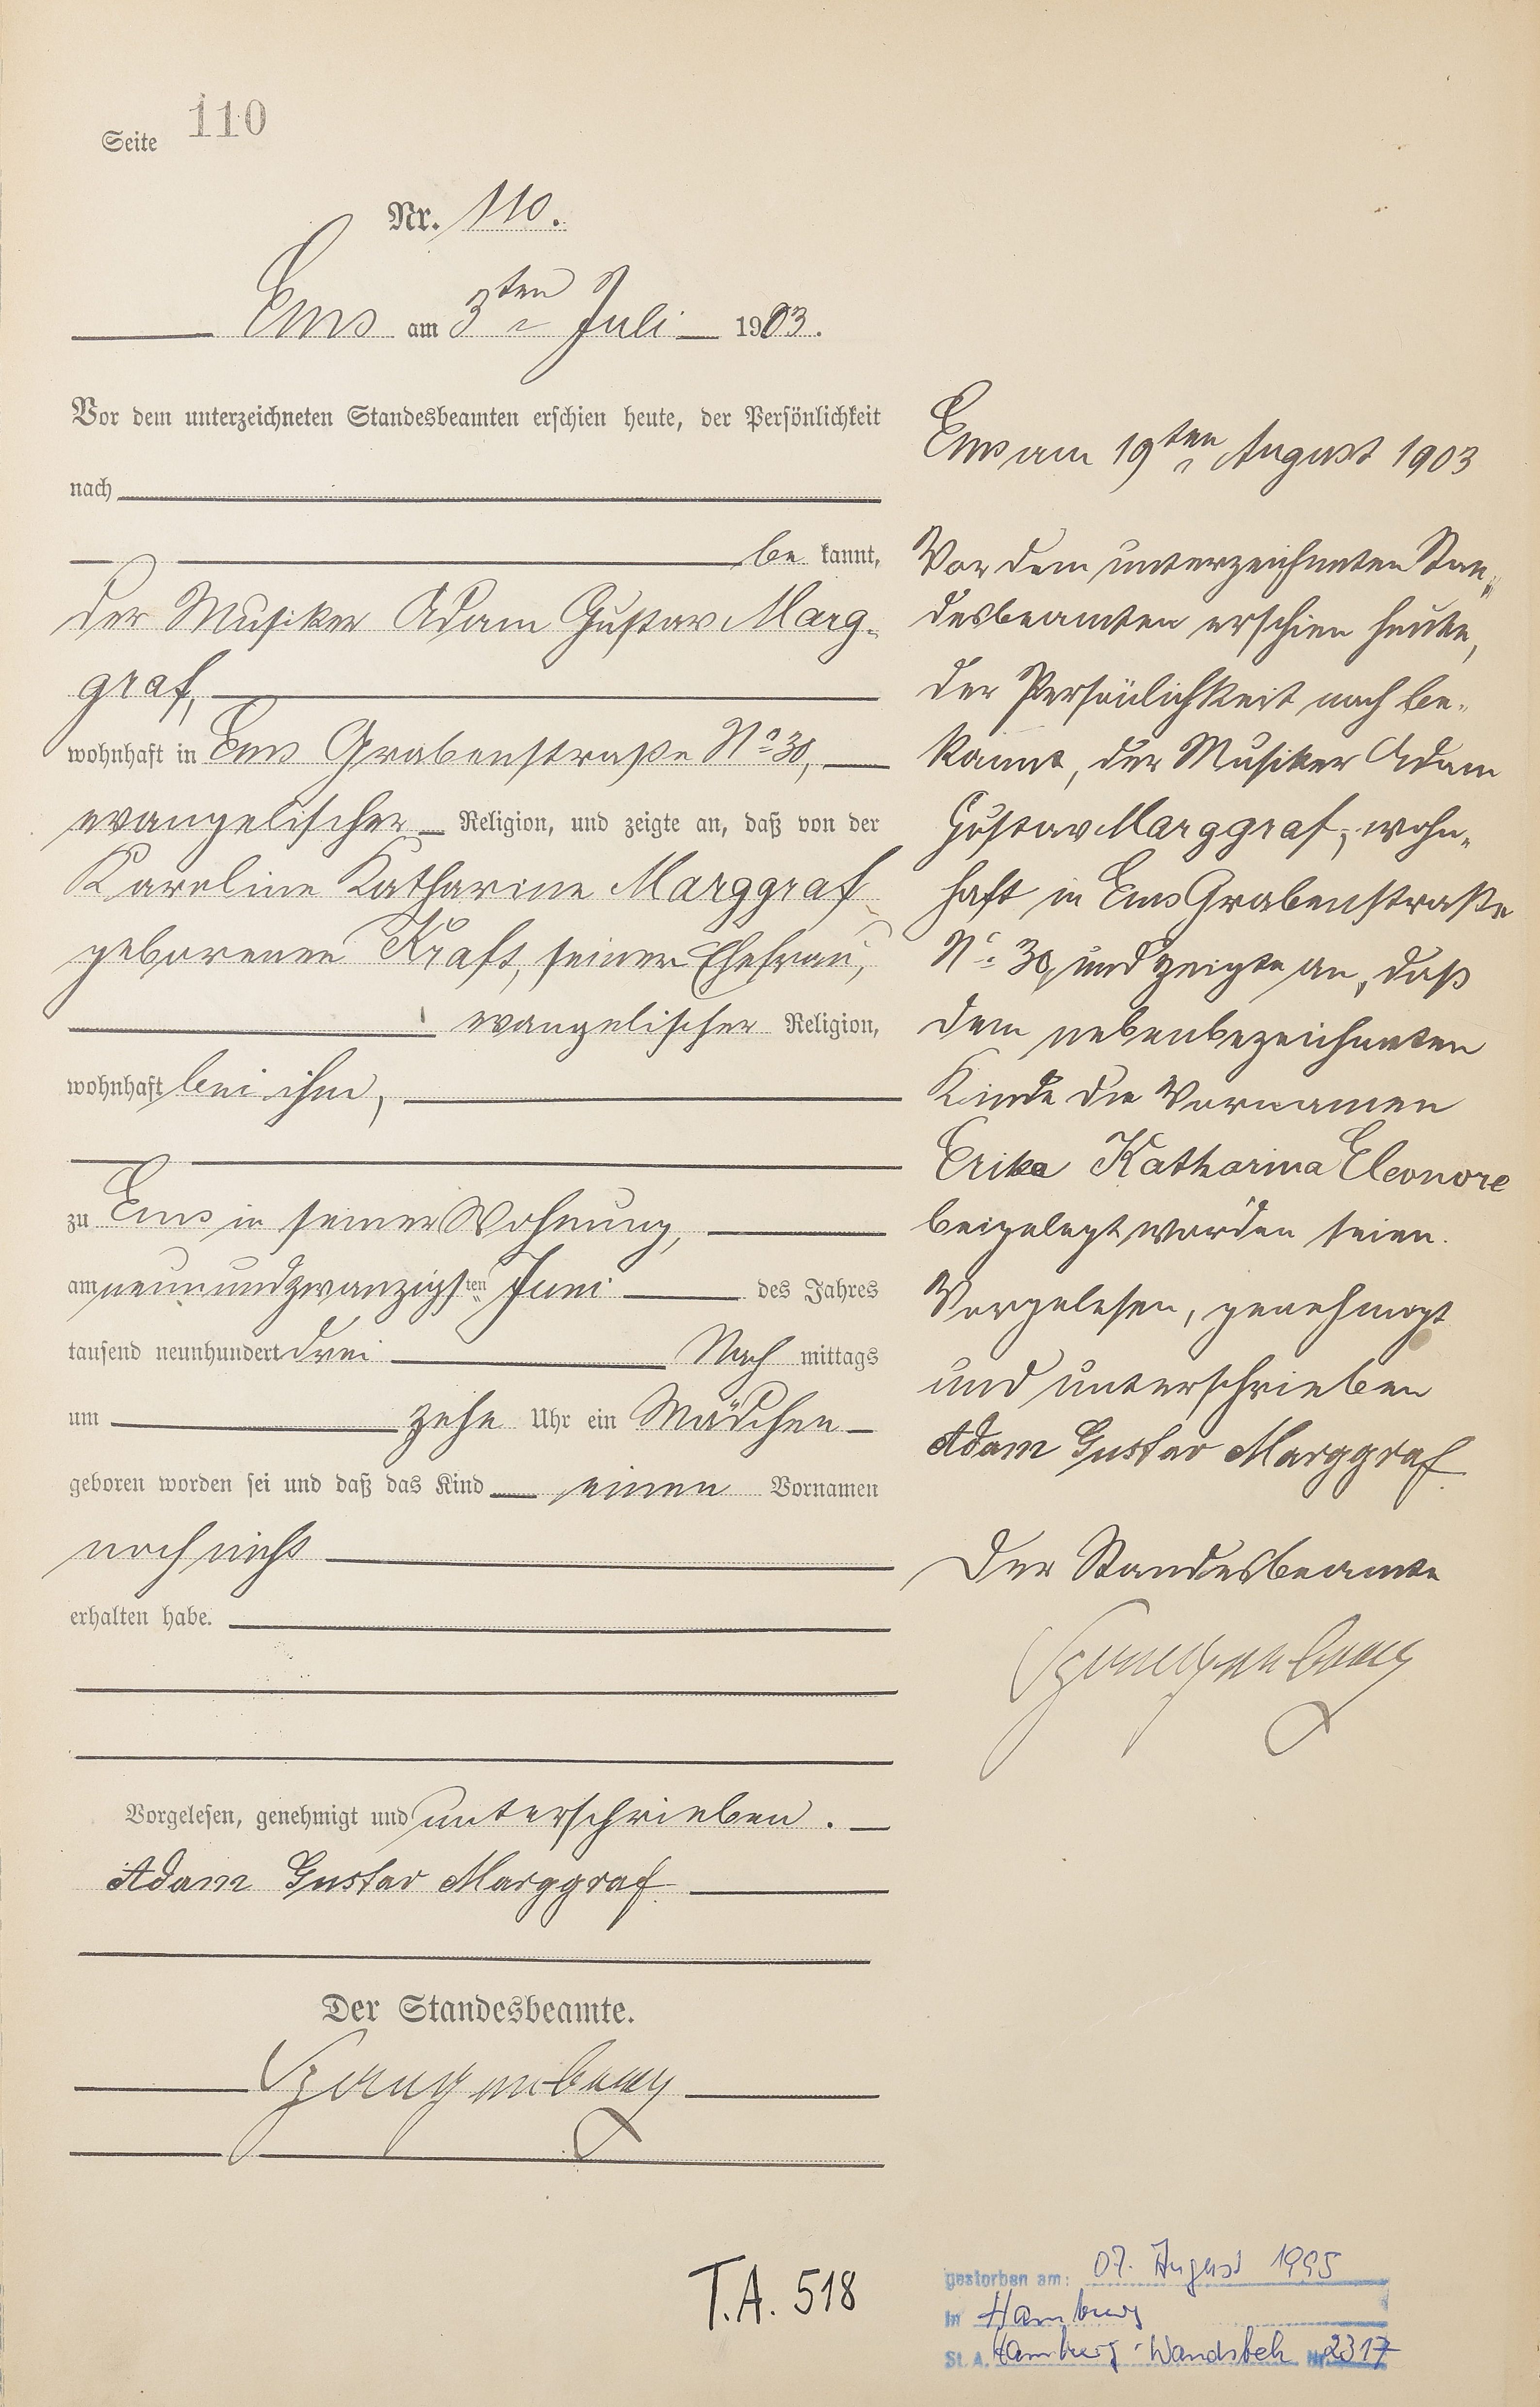 Seite 110
Nr. 110.
Ems am 3ten Juli 1903.
Vor dem unterzeichneten Standesbeamten erschien heute, der Persönlichkeit
nach
be kannt,
der Musiker Adam Gustav Marg-
graf,
wohnhaft in Ems Grabenstraße No 30,
evangelischer Religion, und zeigte an, daß von der
Karoline Katharine Marggraf
geborenen Kraft, seiner Ehefrau,
evangelischer Religion,
wohnhaft bei ihm,
zu Ems in seiner Wohnung,
am neunundzwanzigsten Juni des Jahres
tausend neunhundert drei Nach mittags
um zehn Uhr ein Mädchen
geboren worden sei und daß das Kind einen Vornamen
noch nicht
erhalten habe.
Vorgelesen, genehmigt und unterschrieben.
Adam Gustav Marggraf
Der Standesbeamte.
Ems am 19ten August 1903
Vor dem unterzeichneten Stan-
desbeamten erschien heute,
der Persönlichkeit nach be-
kannt, der Musiker Adam
Gustav Marggraf, wohn-
haft in Ems Grabenstraße
No 30, und zeigte an, daß
dem nebenbezeichneten
Kinde die Vornamen
Erika Katharina Eleonore
beigelegt worden seien.
Vorgelesen, genehmigt
und unterschrieben
Adam Gustav Marggraf
Der Standesbeamte
T.A. 518
gestorben am: 07. August 1995
in Hamburg
St. A. Hamburg-Wandsbek Nr. 2317